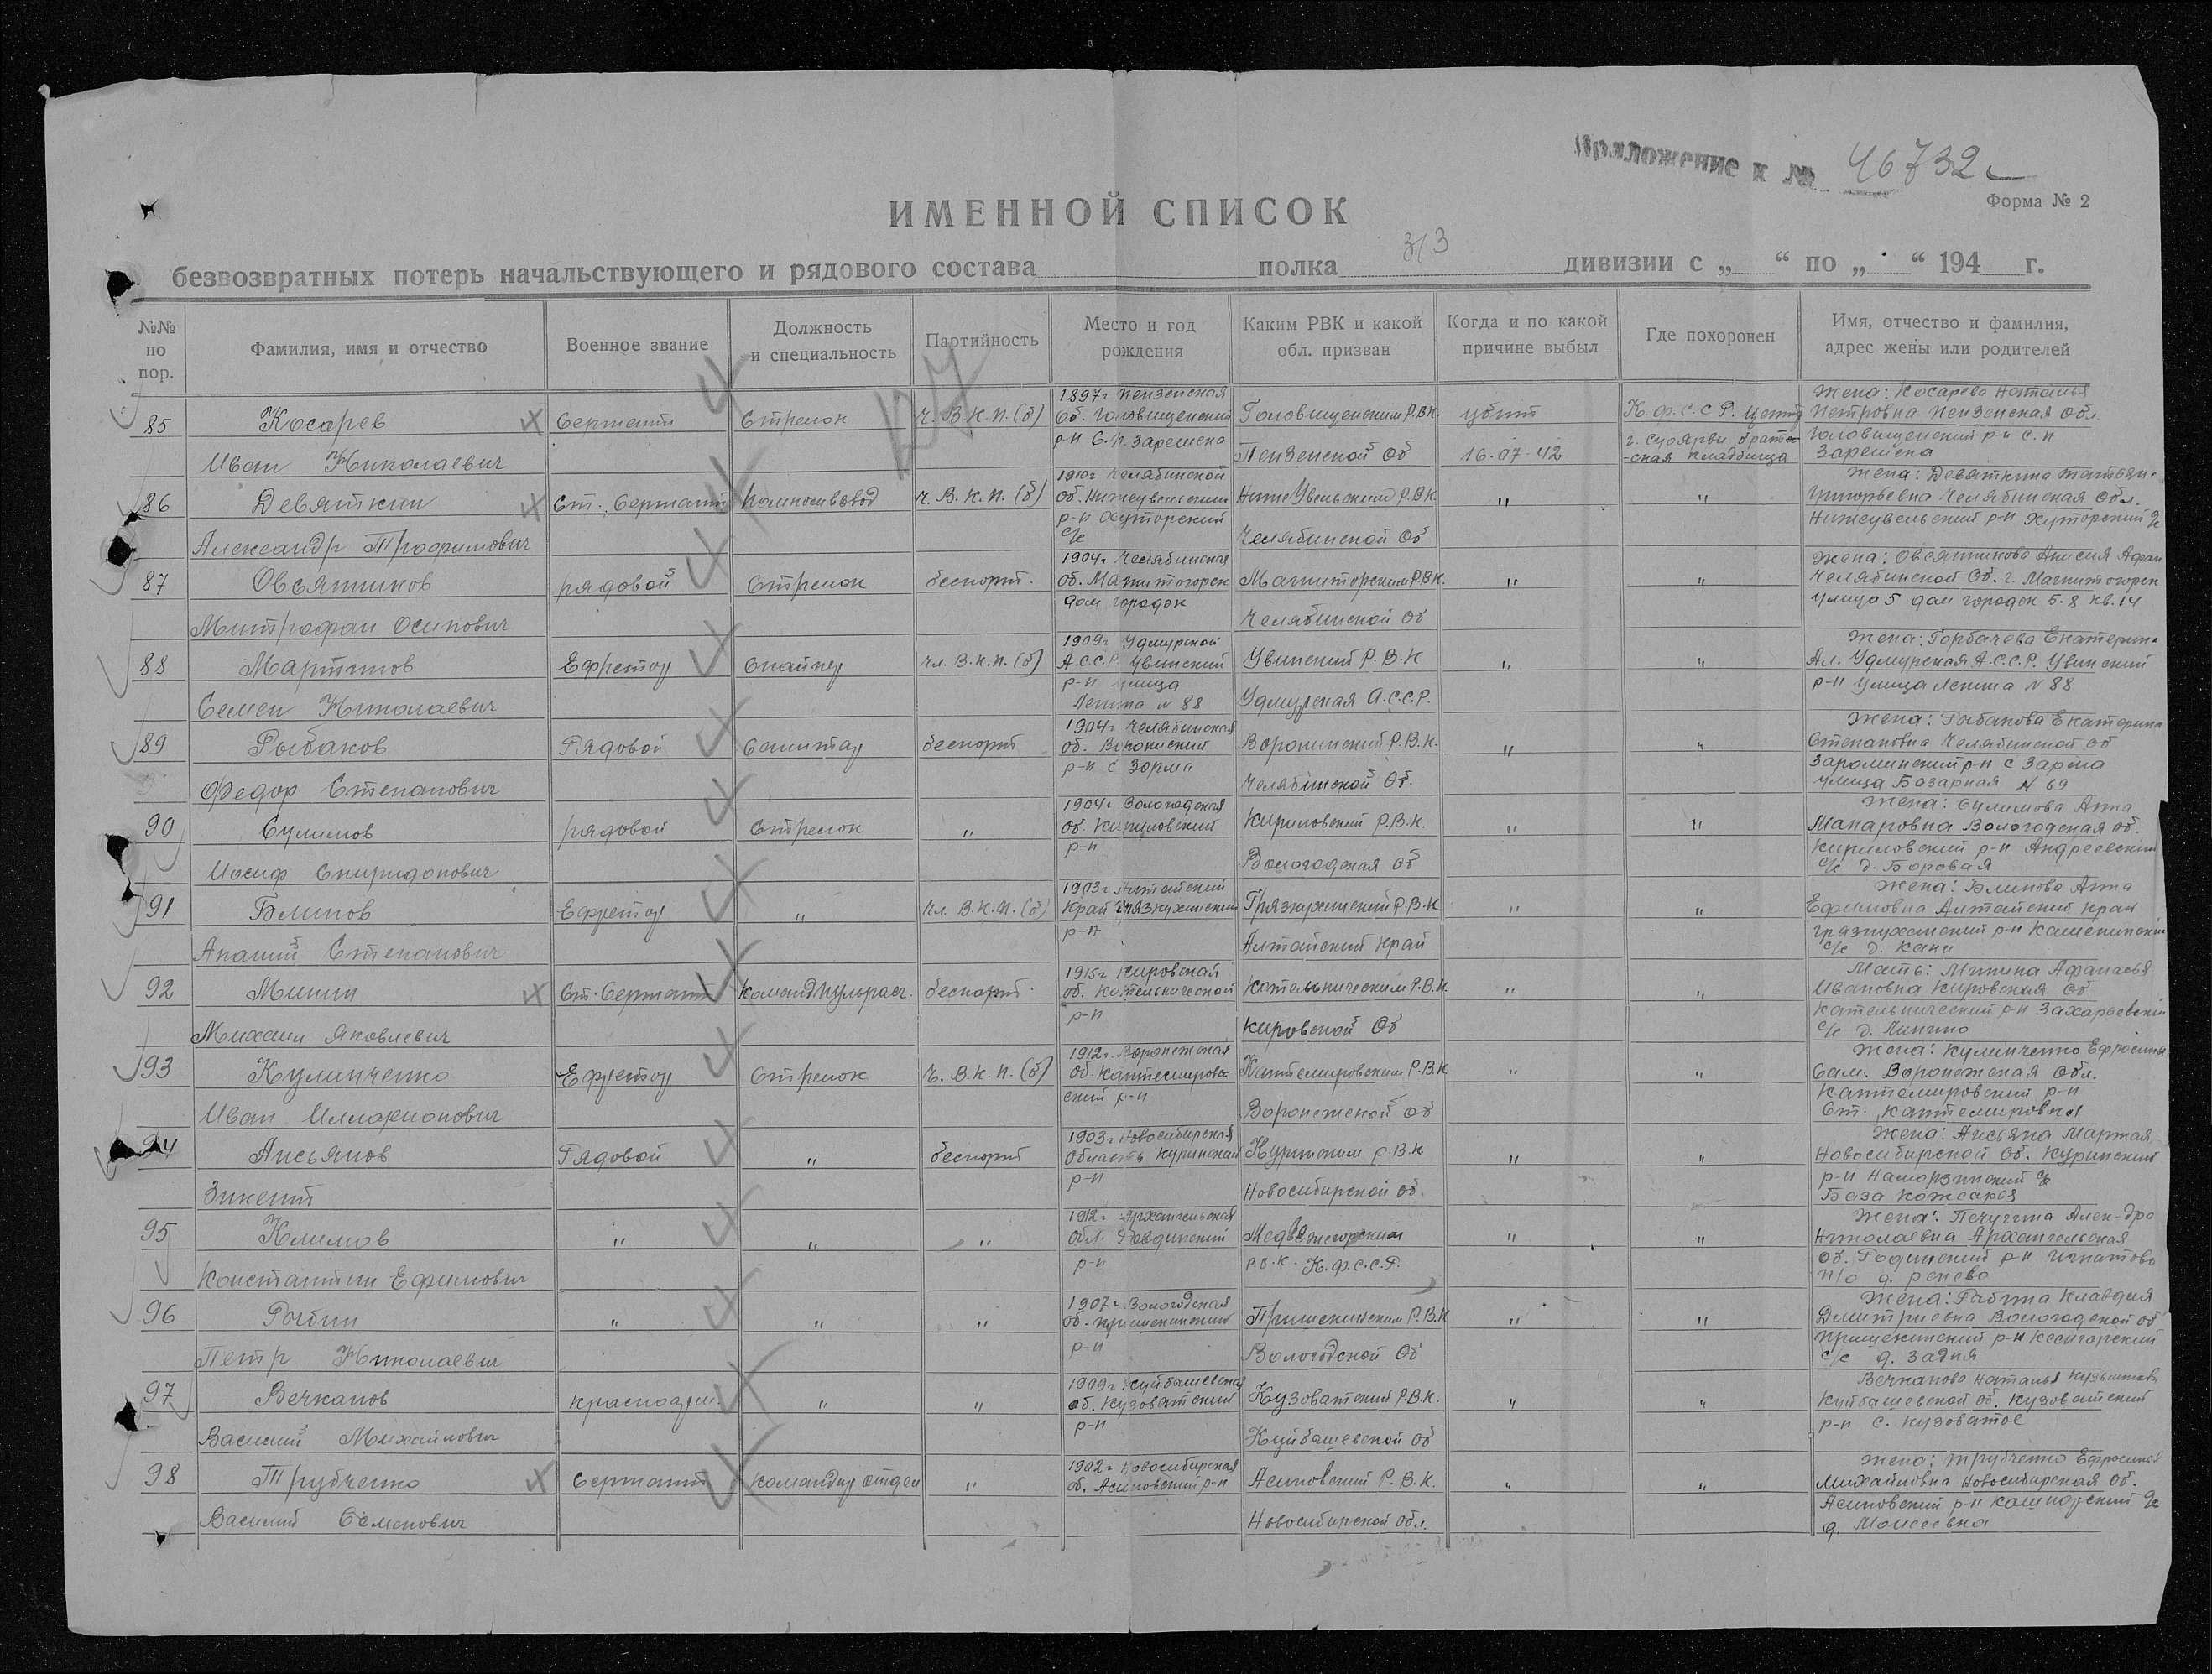 Приложение к № 46732
Форма № 2
ИМЕННОЙ СПИСОК
безвозвратных потерь начальствующего и рядового состава полка 313 дивизии с „ “ по „ “ 194 г.
№№ по пор.
Фамилия, имя и отчество
Военное звание
Должность и специальность
Партийность
Место и год рождения
Каким РВК и какой обл. призван
Когда и по какой причине выбыл
Где похоронен
Имя, отчество и фамилия, адрес жены или родителей
85 Косарев Иван Николаевич
Сержант
Стрелок
ч. В.К.П.(б)
1897г Пензенская
об. Головищенский
р-н С.п. Зарешена
Головищенским Р.В.К
Пензенской Об
убит
16-07-42
К.Ф.С.С Р. центр
г. Суоярви братс-
-ская кладбища
Жена: Косарева Наталья
Петровна Пензенская Обл.
Головищенский р-н С.п
Зарешена
86 Девяткин Александр Трофимович
Ст. Сержант
Помкомвзвод
ч. В.К.П. (б)
1910г Челябинской
об. Нижеувельский
р-н Хуторский
с/с
НижеУвельским Р.В.К
Челябинской Об
"
"
Жена: Девяткина Татьян-
Григорьевна Челябинская Обл.
Нижеувельский р-н Хуторский с/с
87 Овсянников Митрофан Осипович
рядовой
Стрелок
беспарт.
1904г Челябинская
об. Магнитогорск
дом городок
Магниторским Р.В.К.
Челябинской Об
"
"
Жена: Овсянникова Анисия Афан
Челябинской Об. г. Магнитогорск
Улица 5 дом городок 5-8 кв. 14
88 Мартынов Семен Николаевич
Ефрейтор
Снайпер
чл. В.К.П. (б)
1909г Удмурской
А.С.С.Р. Увинский
р-н улица
Ленина № 88
Увинский Р.В.К
Удмурская А.С.С.Р.
"
"
Жена: Горбачева Екатерин-
Ал. Удмурская А.С.С.Р. Увинский
р-н Улица Ленина № 88
89 Рыбаков Федор Степанович
Рядовой
Санитар
беспарт
1904г Челябинская
об.
р-н с Зорма
Р.В.К.
Челябинской Об.
"
"
Жена: Рыбакова Екатерина
Степановна Челябинской об
р-н с Зарма
улица Базарная № 69
90 Сулимов Иосиф Спиридонович
рядовой
Стрелок
"
1904г Вологодская
об. Кириловский
р-н
Кириловский Р.В.К.
Вологодская об
"
"
Жена: Сулимова Анна
Макаровна Вологодская об.
Кириловский р-н Андреевский
с/с д. Боровая
91 Блинов Ананий Степанович
Ефрейтор
"
чл. В.К.П. (б)
1903г Алтайский
Край Грязнухинский
р-н
Грязнухинский Р.В.К
Алтайский край
"
"
Жена: Блинова Анна
Ефимовна Алтайский край
Грязнухинский р-н Каменинский
с/с д.
92 Минин Михаил Яковлевич
Ст. Сержант
Команд пульрасч.
беспарт.
1915г Кировской
об. Котельнической
р-н
Котельническим Р.В.К.
Кировской Об
"
"
Мать: Минина Афанасья
Ивановна Кировская Об
Котельнический р-н Захарьевский
с/с д.
93 Кулинченко Иван Илларионович
Ефрейтор
Стрелок
ч. В.К.П. (б)
1912г Воронежская
об. Кантемировс
ский р-н
Кантемировским Р.В.К
Воронежской об
"
"
Жена: Кулинченко Ефросинья
Сам. Воронежская Обл.
Кантемировский р-н
Ст. Кантемировка
94 Аисьянов Зинеит
Рядовой
"
беспарт
1903г Новосибирская
область Куринский
р-н
Куринским Р.В.К
Новосибирской об.
"
"
Жена: Аисьяна Мартая
Новосибирской Об. Куринский
р-н с/с
База
95 Климов Константин Ефимович
"
"
"
1912г Архангельская
обл. Ровдинский
р-н
Медвежегорским
Р.В.К. К.Ф.С.С.Р.
"
"
Жена: Печугина Алек-дра
Николаевна Архангельская
об. р-н Игнатово
п/о д. Ренево
96 Рыбин Петр Николаевич
"
"
"
1907г Вологодская
об. Пришекнинский
р-н
Пришекнинским Р.В.К
Вологодской Об
"
"
Жена: Рыбина Клавдия
Дмитриевна Вологодской об
р-н
с/с д. Задня
97 Вечканов Василий Михайлович
красноарм.
"
"
1909г Куйбышевская
об. Кузоватский
р-н
Кузоватский Р.В.К.
Куйбышевской об
"
"
Вечканова Наталья Кузьминич
Куйбышевской об. Кузоватский
р-н с. Кузоватое
98 Трубченко Василий Семенович
Сержант
Командир отдел
"
1902г Новосибирская
об. Асиновский р-н
Асиновский Р.В.К.
Новосибирской обл.
"
"
Жена: Трубченко Ефросинья
Михайловна Новосибирская Об.
Асиновский р-н с/с
д. Моисеевка